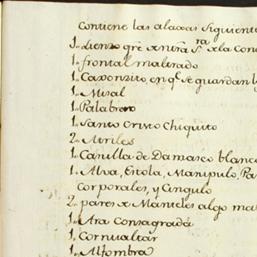 Contiene las alaxas siguiente
1. Lienzo qe. de nrâ. Srâ. de la Con
1. frontal maltratado
1. Caxonzito, en qe. se guardan l
1. Misal
1. Palabrero
1. Santo Cristo Chiquito
2. Atriles
1. Casulla de Damasco blanco
1. Alva, Estola, Manipulo, Pa
Corporales, y Cingulo
2. pares de Manteles algo ma
1. Ara Consagrada
1. Cornualtar
1. Alfombra